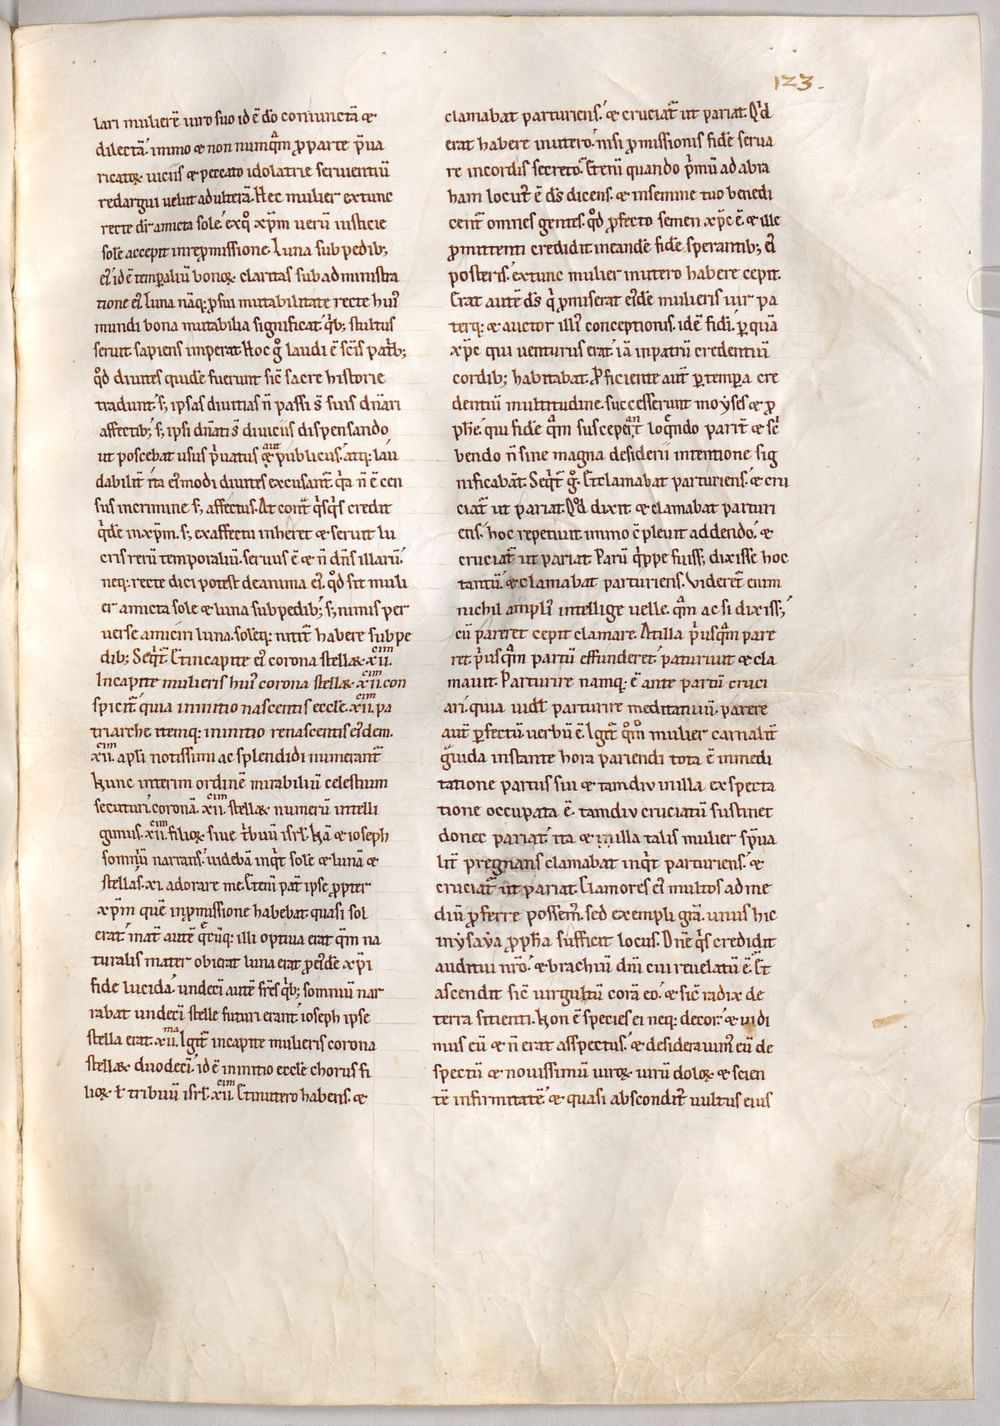 123.
lari muliere᷒ uiro suo id ē dō coniunctā &
dilectā. immo & non numq̄m ꝓ parte p̄ua
ricatoꝝ uiciis & peccato idolatrie seruientiū
redargui uelut adulterā. Hec mulier extunc
recte dr̄ amicta sole. exq̊ xp̄m uerū iusticie
sole accepit in repmissione. Luna sub pedib;
ei᷒ id ē temꝑaliū bonoꝝ claritas sub administra
tione ei᷒. Luna nāq; ꝓ sui mutabilitate recte hui᷒
mundi bona mutabilia significat. q̄b; stultus
seruit sapiens imperat. Hoc g̊ laudi ē scīs patb;
qd̊ diuites quidē fuerunt sic̄ sacre historie
tradunt. s; ipsas diuitias n̄ passi s̄ suis dn̄ari
affectib; s; ipsi dn̄ati s̄ diuiciis dispensando
ut poscebat usus p̄uatus aut publicus. atq; lau
dabilit̄ ita ei᷒modi diuites excusant̄ q̄a n̄ ē cen
sus in crimine s; affectus. At cont̄ q̄sq̄s credit
q̄dē in xp̄m. s; ex affectu inheret & seruit lu
cris rerū temporaliū. seruus ē & n̄ dn̄s illarū.
neq; recte dici potest de anima ei᷒. qd̊ sit muli
er amicta sole & luna sub pedib; s; nimis per
uerse amiciri luna. soleq; nitit̄ habere sub pe
dib; Seqt̄. Et in capite ei᷒ corona stellaꝝ .xii.cim
In capite mulieris hui᷒ corona stellaꝝ .xii.cim con
spicit̄ quia in initio nascentis eccl̄e .xii.cim pa
triarche. itemq; in initio renascentis ei᷒dem.
.xii.cim apl̄i notissimi ac splendidi numerant̄
Nunc interim ordinē mirabiliū celestium
secuturi. coronā .xii.cim stellaꝝ numerū intelli
gimus .xii.cim filioꝝ siue tribuū isrl̄. Nā & ioseph
somniū narrans. uidebā inqt̄ solē & lunā &
stellas .xi. adorare me. Etenī pat̄ ipse propter
xp̄m quē in ꝓmissione habebat quasi sol
erat. mat̄ autē q̄cūq; illi optiua erat q̄m na
turalis mater obierat luna erat ꝓ eidē xp̄i
fide lucida. undecī autē fr̄es q̄b; somniū nar
rabat undecī stelle futuri erant. ioseph ipse
stella erat .xii.ma Igit̄ in capite mulieris corona
stellaꝝ duodecī. id ē in initio eccl̄e chorus fi
lioꝝ ł tribuū isrl̄ .xii.cim Et in utero habens. &
clamabat parturiens. & cruciat̄ ut pariat. Qd̄
erat habere in utero. nisi ꝓmissionis fidē serua
re in cordis secreto. Etenī quando p̄mū ad abra
ham locut᷒ ē dn̄s dicens. & in semine tuo benedi
cent̄ omnes gentes. qd̊ ꝓfecto semen xp̄c ē. & ille
ꝓmittenti credidit in eandē fidē sperantib; ei᷒
posteris. extunc mulier in utero habere cepit.
Erat autē dn̄s q̄ ꝓmiserat ei᷒dē mulieris uir pa
terq; & auctor illi᷒ conceptionis. id ē fidi. ꝑ quā
xp̄c qui uenturus erat. iā in patrū credentiū
cordib; habitabat. Proficiente aut̄ ꝑ tempora cre
dentiū multitudine. successerunt moyses & ꝓ
phē qui fidē q̄m susceperant loquendo parit̄ & sc̄
bendo n̄ sine magna desiderii intentione sig
nificabāt. Seqt̄ g̊. Et clamabat parturiens. & cru
ciat̄ ut pariat. Qd̊ dixit & clamabat parturi
ens. hoc repetiuit immo c̄pleuit addendo. &
cruciat̄ ut pariat. Parū q̄ppe fuiss; dixisse hoc
tantū. & clamabat parturiens. Videret̄ enim
nichil ampli᷒ intellige uelle. q̄m ac si dixiss;
cū pareret cepit clamare. At illa p̄usq̄m pare
ret p̄usq̄m partū effunderet. parturiuit & cla
mauit. Parturire namq; ē ante partū cruci
ari. quia uidl̄ parturire meditatiuū. parere
aut̄ ꝑfectū uerbū ē. Igit̄ qm̊ mulier carnalit̄
grauida instante hora pariendi tota ē in medi
tatione partus sui & tamdiu in illa exspecta
tione occupata ē. tamdiu cruciatū sustinet
donec pariat. ita & in illa talis mulier sp̄ua
lit̄ pregnans clamabat inqt̄ parturiens. &
cruciat̄ ut pariat. Clamores ei᷒ multos ad me
diū ꝓferre possem᷒. sed exempli gr̄a. unus hic
in ysaya ꝓpha sufficit locus. Dn̄e q̄s credidit
auditui nr̄o. & brachiū dn̄i cui reuelatū ē. Et
ascendit sic̄ uirgultū corā eo. & sic̄ radix de
terra sitienti. Non ē species ei neq; decor. & uidi
mus eū & n̄ erat asspectus. & desiderauim᷒ eū de
spectū & nouissimū uiroꝝ uirū doloꝝ & scien
tē infirmitatē & quasi absconditꝰ uultus eius